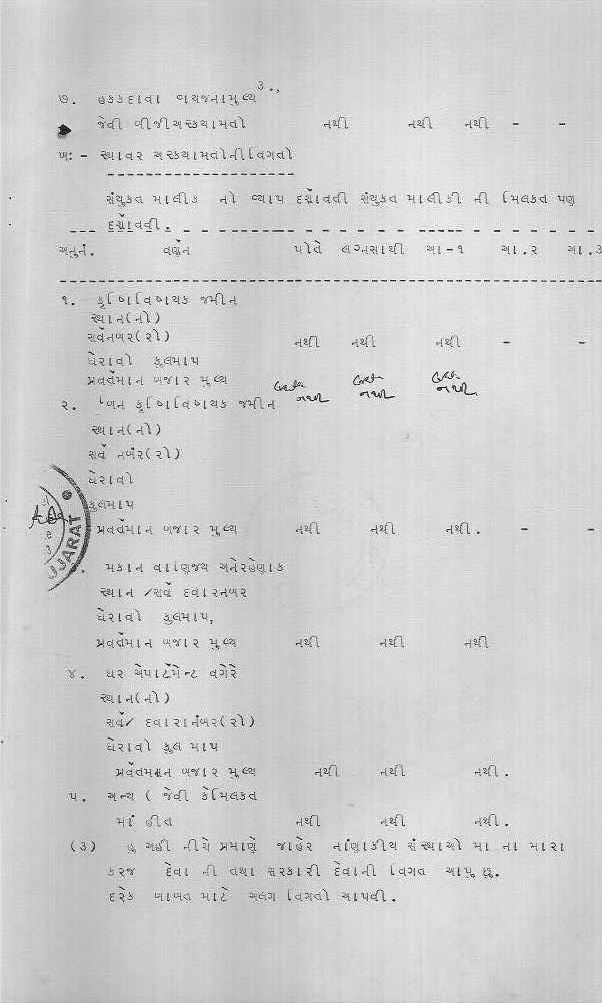 ૩..
૭. હકકદાવા વ્યજનામૂલ્ય
જેવી બીજી અસ્કયામતો નથી નથી નથી - -
ખઃ- સ્થાવર અસ્કયામતોની વિગતો
સંયુકત માલીક નો વ્યાપ દર્શાવતી સંયુકત માલીકી ની મિલકત પણ
દર્શાવવી.
અનુનં. વર્ણન પોતે લગ્નસાથી આ-૧ આ.૨ આ.૩
૧. કૃષિવિષયક જમીન
સ્થાન(નો)
સર્વેનબર(રો) નથી નથી નથી - -
ઘેરાવો કુલમાપ
પ્રવર્તમાન બજાર મૂલ્ય નથી નથી નથી
૨. બિન કૃષિવિષયક જમીન
સ્થાન(નો)
સર્વે નબંર(રો)
ઘેરાવો
કુલમાપ
પ્રવર્તમાન બજાર મૂલ્ય નથી નથી નથી. - -
UJARAT
મકાન વાણિજય અનેરહેણાક
સ્થાન /સર્વે દવારનબર
ઘેરાવો કુલમાપ,
પ્રવર્તમાન બજાર મૂલ્ય નથી નથી નથી
૪. ઘર એપાર્ટમેન્ટ વગેરે
સ્થાન(નો)
સર્વે/ દવારાનંબર(રો)
ઘેરાવો કુલ માપ
પ્રર્વતમાન બજાર મૂલ્ય નથી નથી નથી.
૫. અન્ય ( જેવી કેમિલકત
માં હીત નથી નથી નથી.
(૩) હુ અહી નીચે પ્રમાણે જાહેર નાંણાકીય સંસ્થાઓ મા ના મારા
કરજ દેવા ની તથા સરકારી દેવાની વિગત આપુ છુ.
દરેક બાબત માટે અલગ વિગતો આપવી.